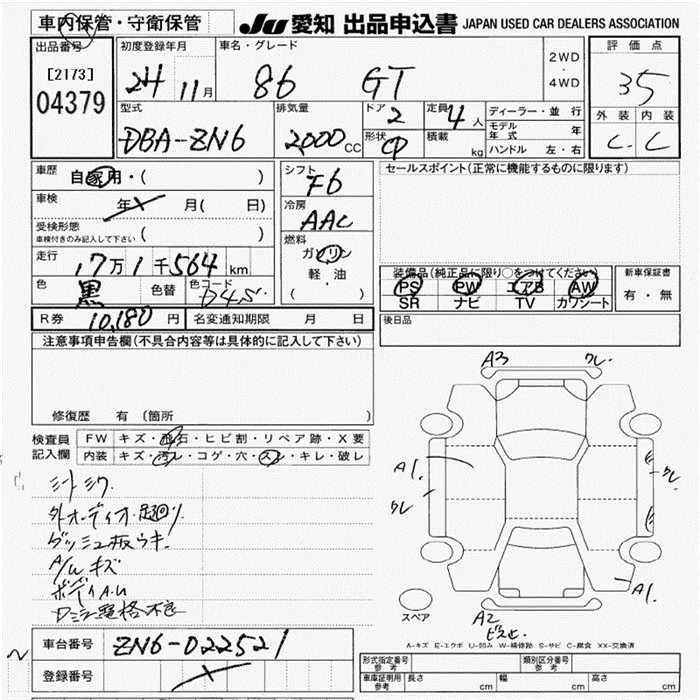 車内保管・守衛保管
JU 愛知 出品申込書 JAPAN USED CAR DEALERS ASSOCIATION
出品番号
[2173]
04379
初度登録年月
24 11月
車名・グレード
86 GT
2WD
・
4WD
評価点
35
外装 内装
C C
型式
DBA-ZN6
排気量
2000CC
ドア
2
形状
CP
定員
4人
積載
kg
ディーラー・並行
モデル年式 年
ハンドル 左・右
車歴 自家用・( )
車検 年 月( 日)
受検形態
車検付きのみ記入して下さい ( )
走行 17万1千564km
色 黒 色替 色コード D4S
シフト
F6
冷房
AAC
燃料
ガソリン
軽・油
( )
セールスポイント(正常に機能するものに限ります)
装備品(純正品に限り○をつけてください)
PS PW エアB AW
SR ナビ TV カワシート
新車保証書
有・無
R券 10,180円 名変通知期限 月 日
後日品
注意事項申告欄(不具合内容等は具体的に記入して下さい)
修復歴 有(箇所 )
検査員記入欄
FW キズ・飛石・ヒビ割・リペア跡・X要
内装 キズ・汚レ・コゲ・穴・スレ・キレ・破レ
シートシワ
外オーディオ・足回り
ダッシュ板ウキ
A/Wキズ
ボディAU
A3
クレ
A1
クレ
クレ
A1
A2
スペア
A-キズ E-エクボ U-凹み W-補修跡 S-サビ C-腐食 XX-交換済
車台番号 ZN6-022521
登録番号
形式指定番号 参考
類別区分番号 参考
車庫証明用 参考 長さ cm 幅 cm 高さ cm